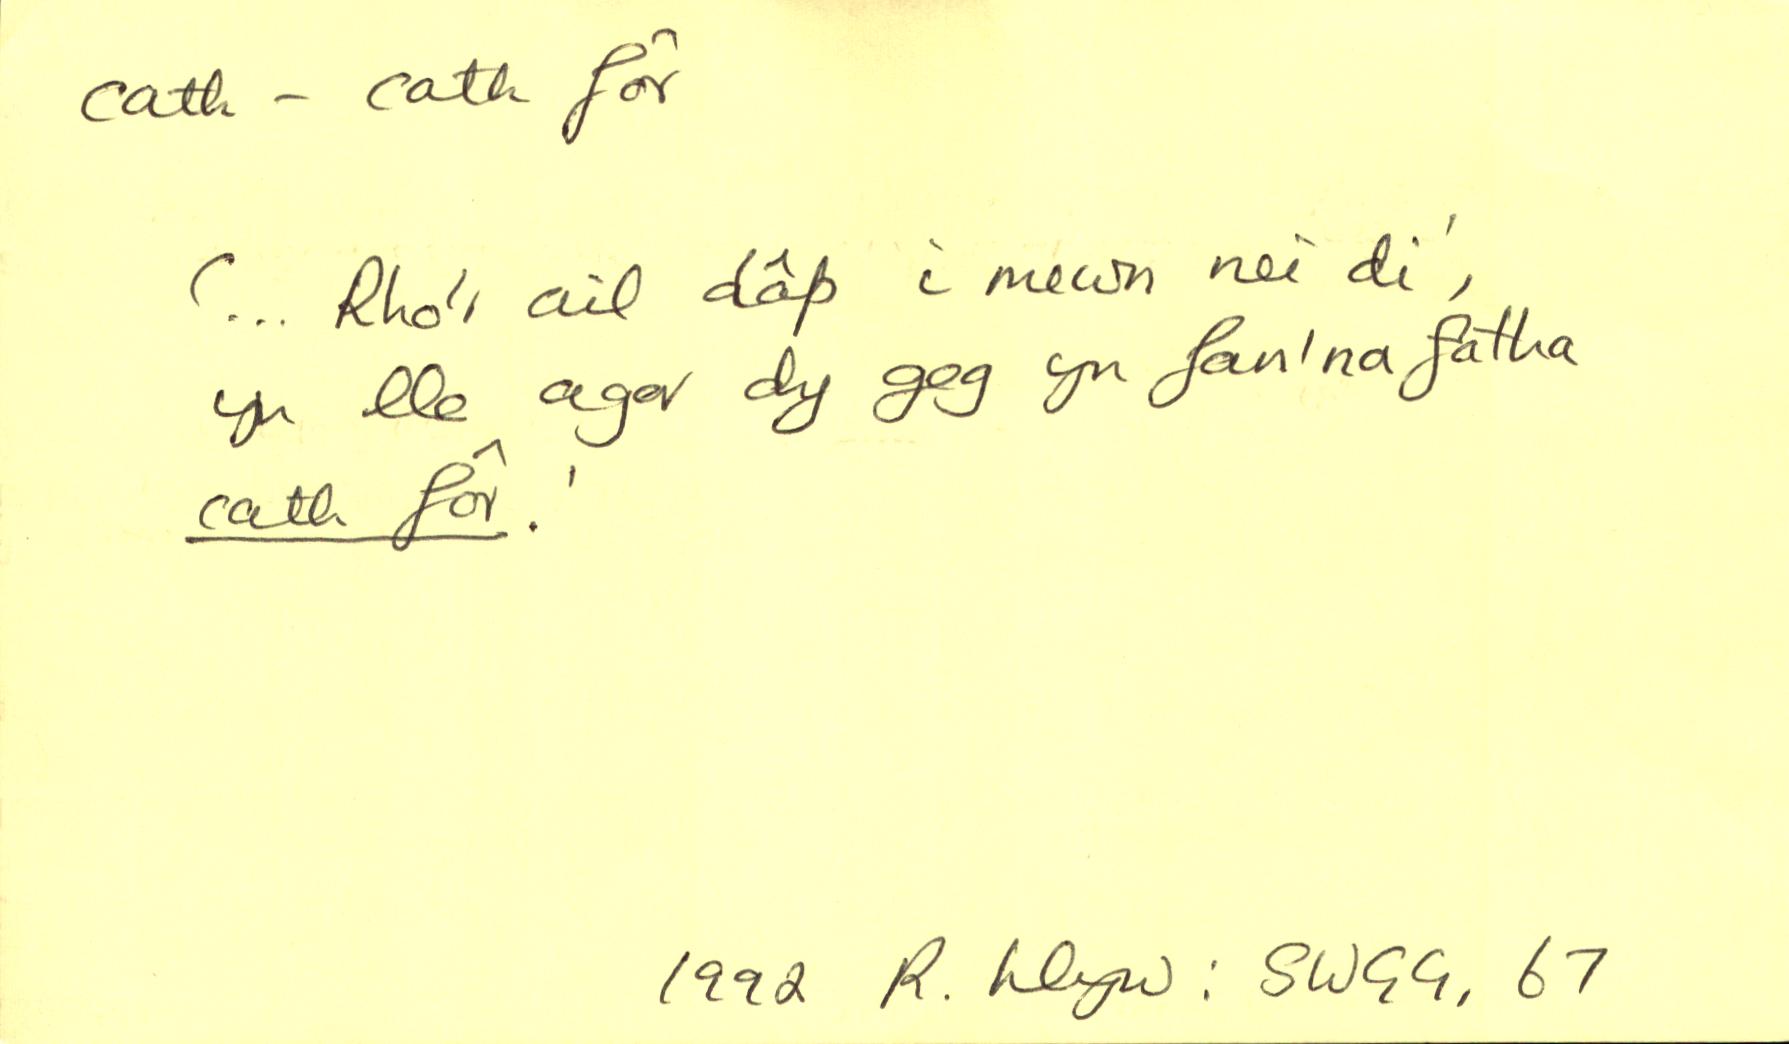 cath - cath fôr
'... Rho'r ail dâp i mewn nei di',
yn lle agor dy geg yn fan'na fatha
cath fôr.'
1992 R. Llwyn: SWGG, 67